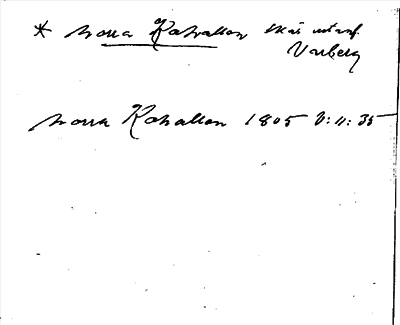 * Norra Kohallen skär utanf.
Varberg
Norra Kohallen 1805 V: 11: 35